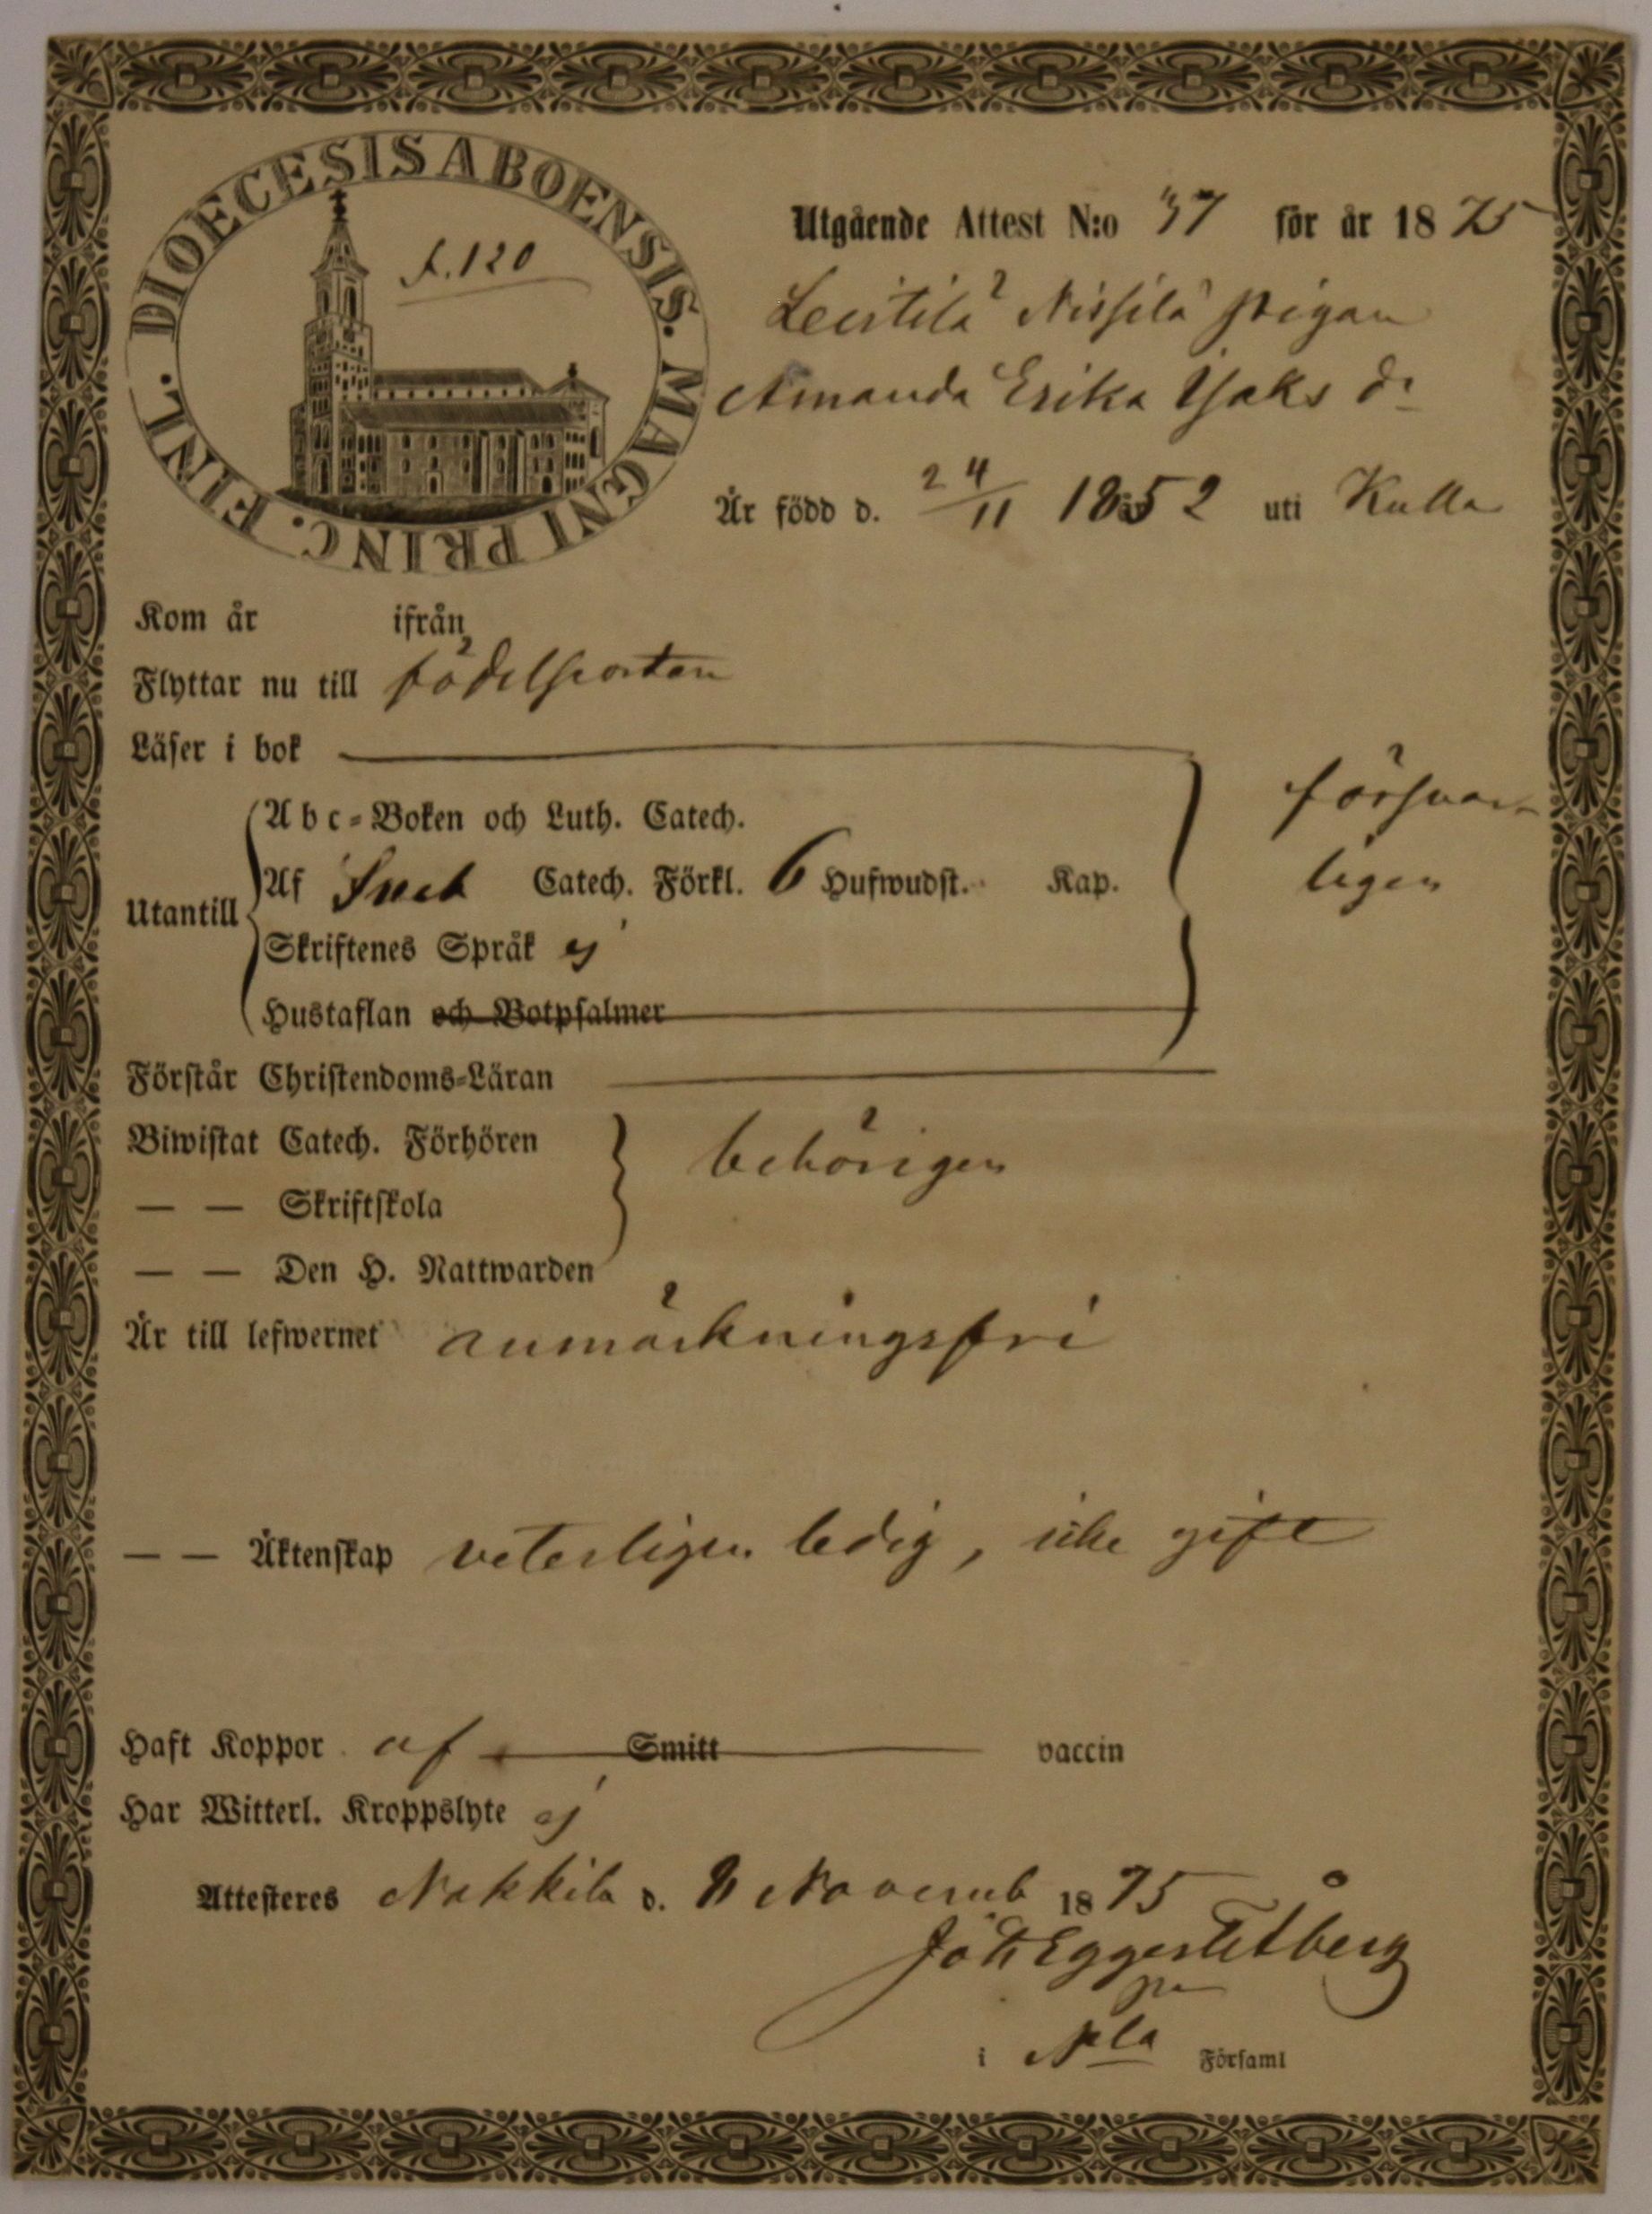 DIOECESIS ABOENSIS. MAGNI PRINC. FINL.
f. 120
Utgående Attest N:o 37 för år 1875
Leistilä Nissilä pigan
Amanda Erika Isaks dr
Är född d. 24/11 1852 uti Kulla
Kom år ifrån
Flyttar nu till födelseorten
Läser i bok
försvar-
ligen
Utantill
A b c-Boken och Luth. Catech.
Af Sveb Catech. Förkl. 6 Hufwudst. Kap.
Skriftenes Språk ej
Hustaflan och Botpsalmer
Förstår Christendoms-Läran
Biwistat Catech. Förhören
— — Skriftskola
— — Den H. Nattwarden
behörigen
Är till lefwernet anmärkningsfri
— — Äktenskap veterligen ledig, icke gift
Haft Koppor af Smitt vaccin
Har Witterl. Kroppslyte ej
Attesteres Nakkila d. 8 Novemb 1875
Joh Eggert Åberg
i Nla Församl